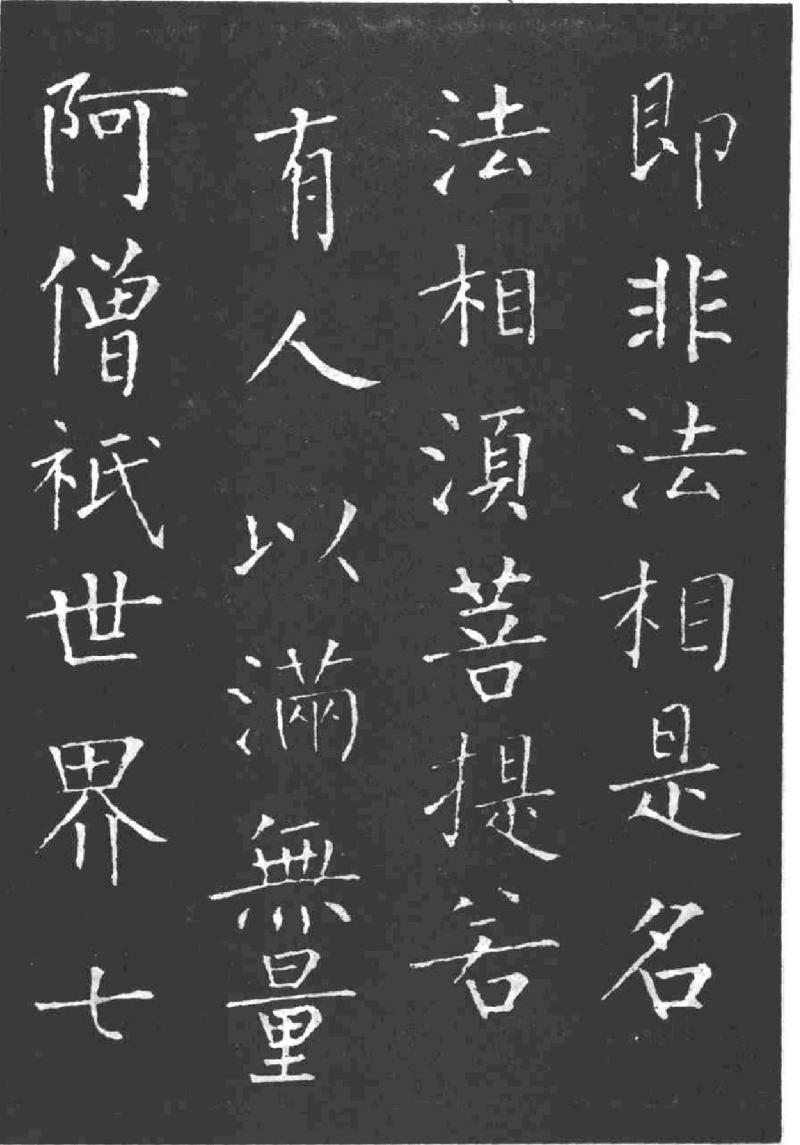 即非法相是名
法相須菩提若
有人以滿無量
阿僧祇世界七